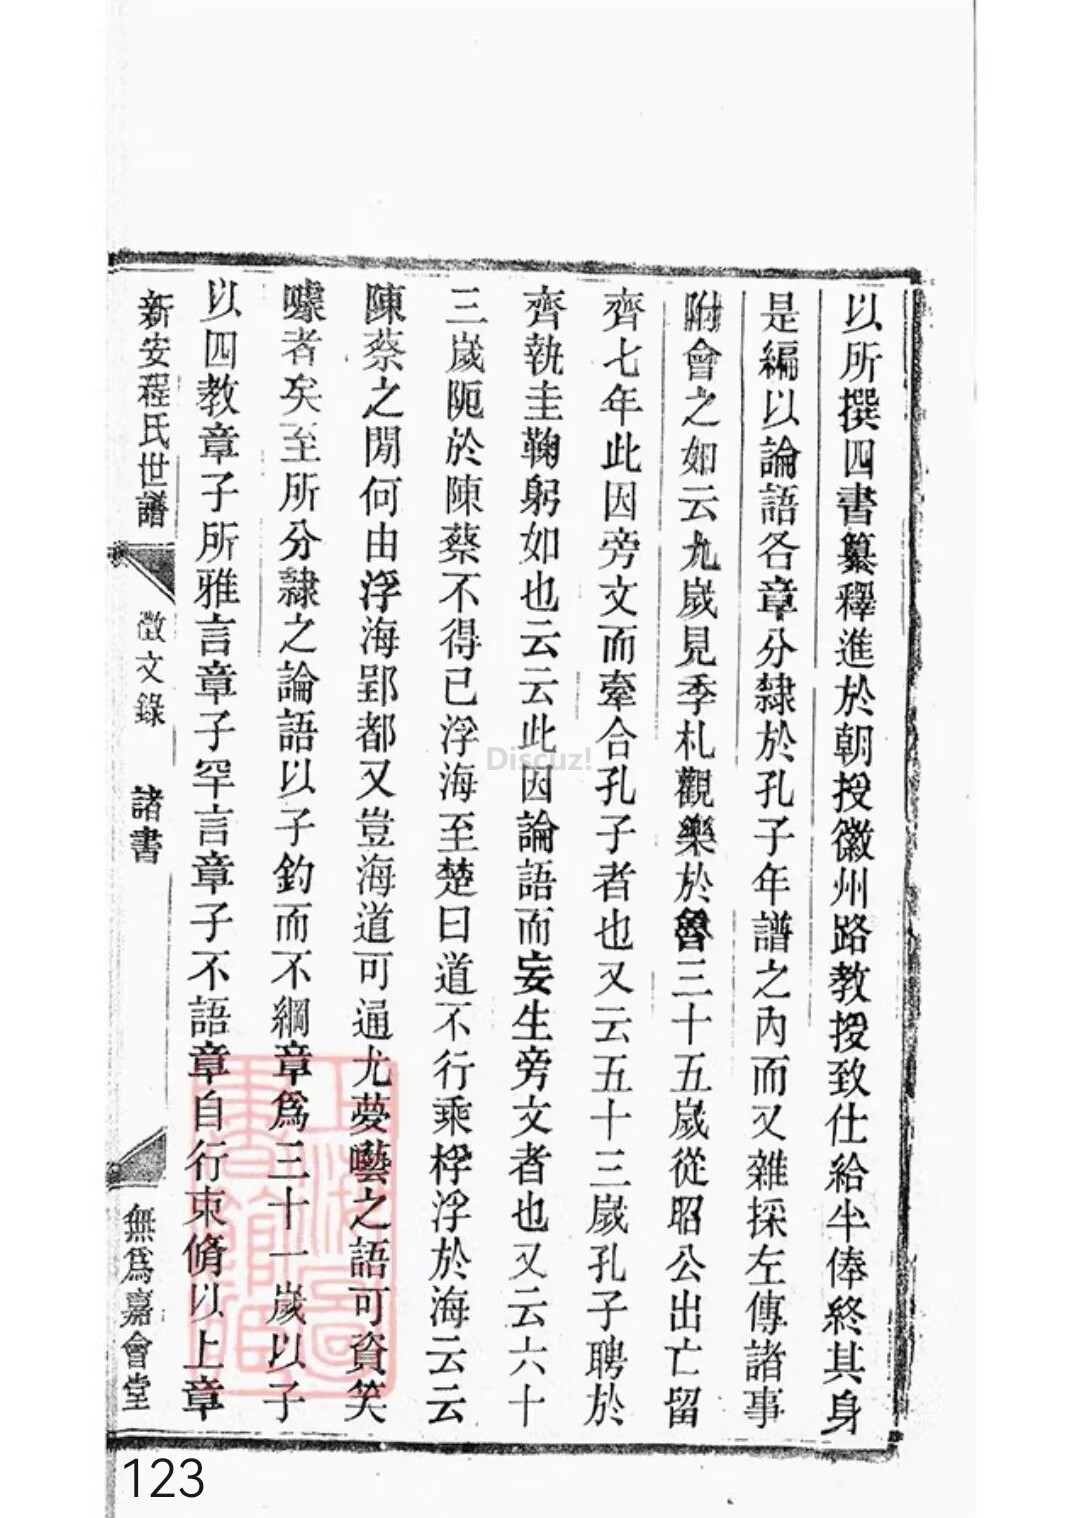 以所撰四書纂釋進於朝授徽州路教授致仕給半俸終其身
是編以論語各章分隸於孔子年譜之內而又雜採左傳諸事
附會之如云九歲見季札觀樂於魯三十五歲從昭公出亡留
齊七年此因旁文而牽合孔子者也又云五十三歲孔子聘於
齊執圭鞠躬如也云云此因論語而妄生旁文者也又云六十
三歲阨於陳蔡不得已浮海至楚曰道不行乘桴浮於海云云
陳蔡之閒何由浮海郢都又豈海道可通尤夢囈之語可資笑
噱者矣至所分隸之論語以子釣而不綱章爲三十一歲以子
以四教章子所雅言章子罕言章子不語章自行束脩以上章
新安程氏世譜
徵文錄
諸書
無爲嘉會堂
上海圖書館藏
Discuz!
123